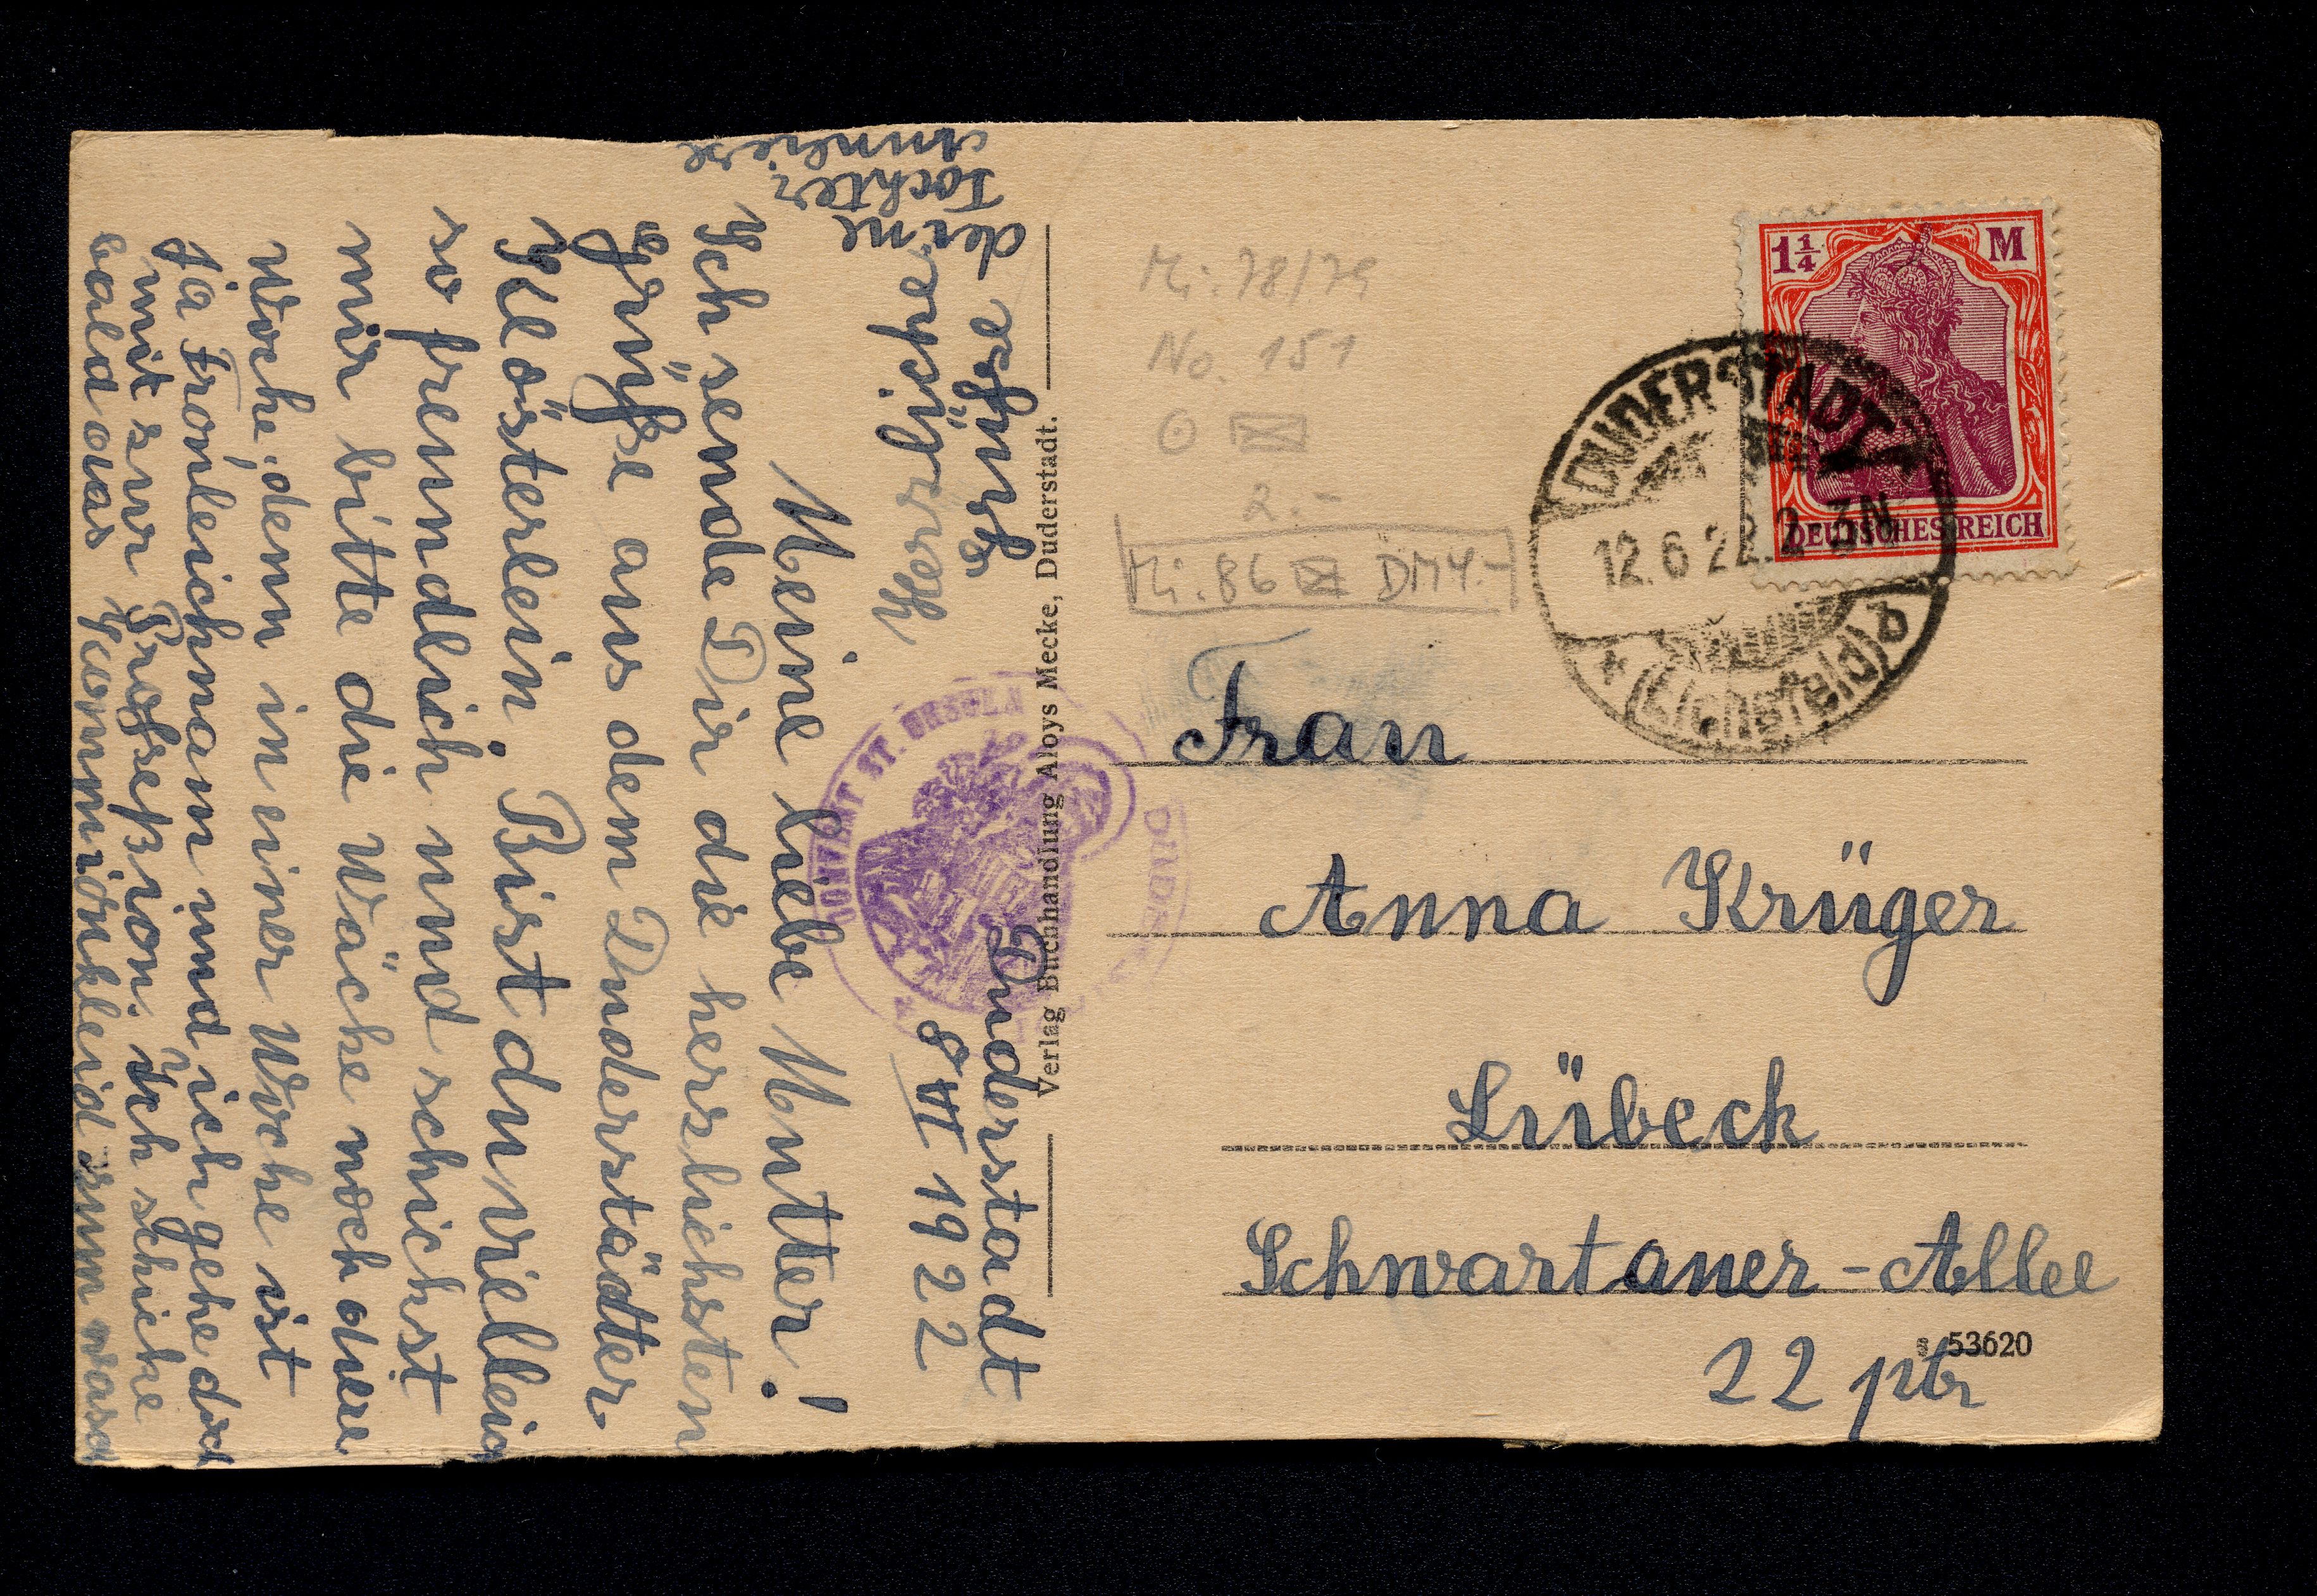 Duderstadt
8 VI 1922
Meine liebe Mutter!
Ich sende Dir die herslichsten
Grüße aus dem Duderstädter
Klösterlein. Bist du vielleich
so freundlich und schichst
mir bitte die Wäche noch diese
Woche, denn in einer Woche ist
ja Fronleichnam und ich gehe doch
mit sur Proseßion. Ich schicke
bald das Kommionkleid sum wasch
Herzliche
grüße
deine
Tochter
Anneliese
CONVENT ST. URSULA
Verlag Buchhandlung Aloys Mecke, Duderstadt.
Mi. 78/79
No. 151
2.-
Mi. 86 DM 4.-
1 1/4 M
DEUTSCHES REICH
DUDERSTADT
12.6.22. 2-3N
* (Eichsfeld) b
Frau
Anna Krüger
Lübeck
Schwartauer-Allee
53620
22 ptr